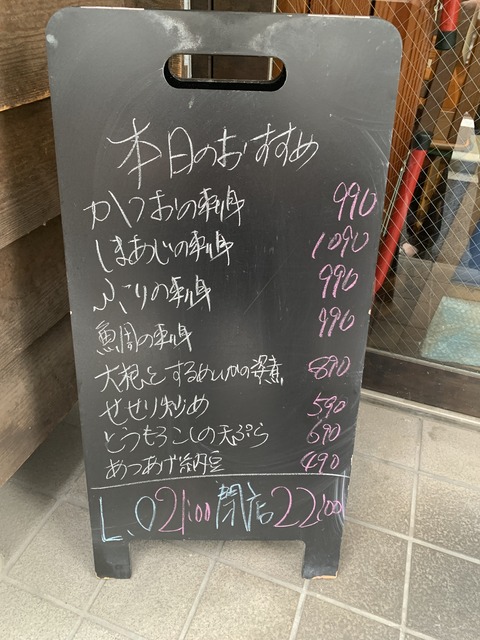 本日のおすすめ
かつおの刺身 990
しまあじの刺身 1090
ぶりの刺身 990
魚周の刺身 990
大根とするめいかの姿煮 890
せせり炒め 590
とうもろこしの天ぷら 690
あつあげ納豆 490
L.O 21:00 閉店 22:00